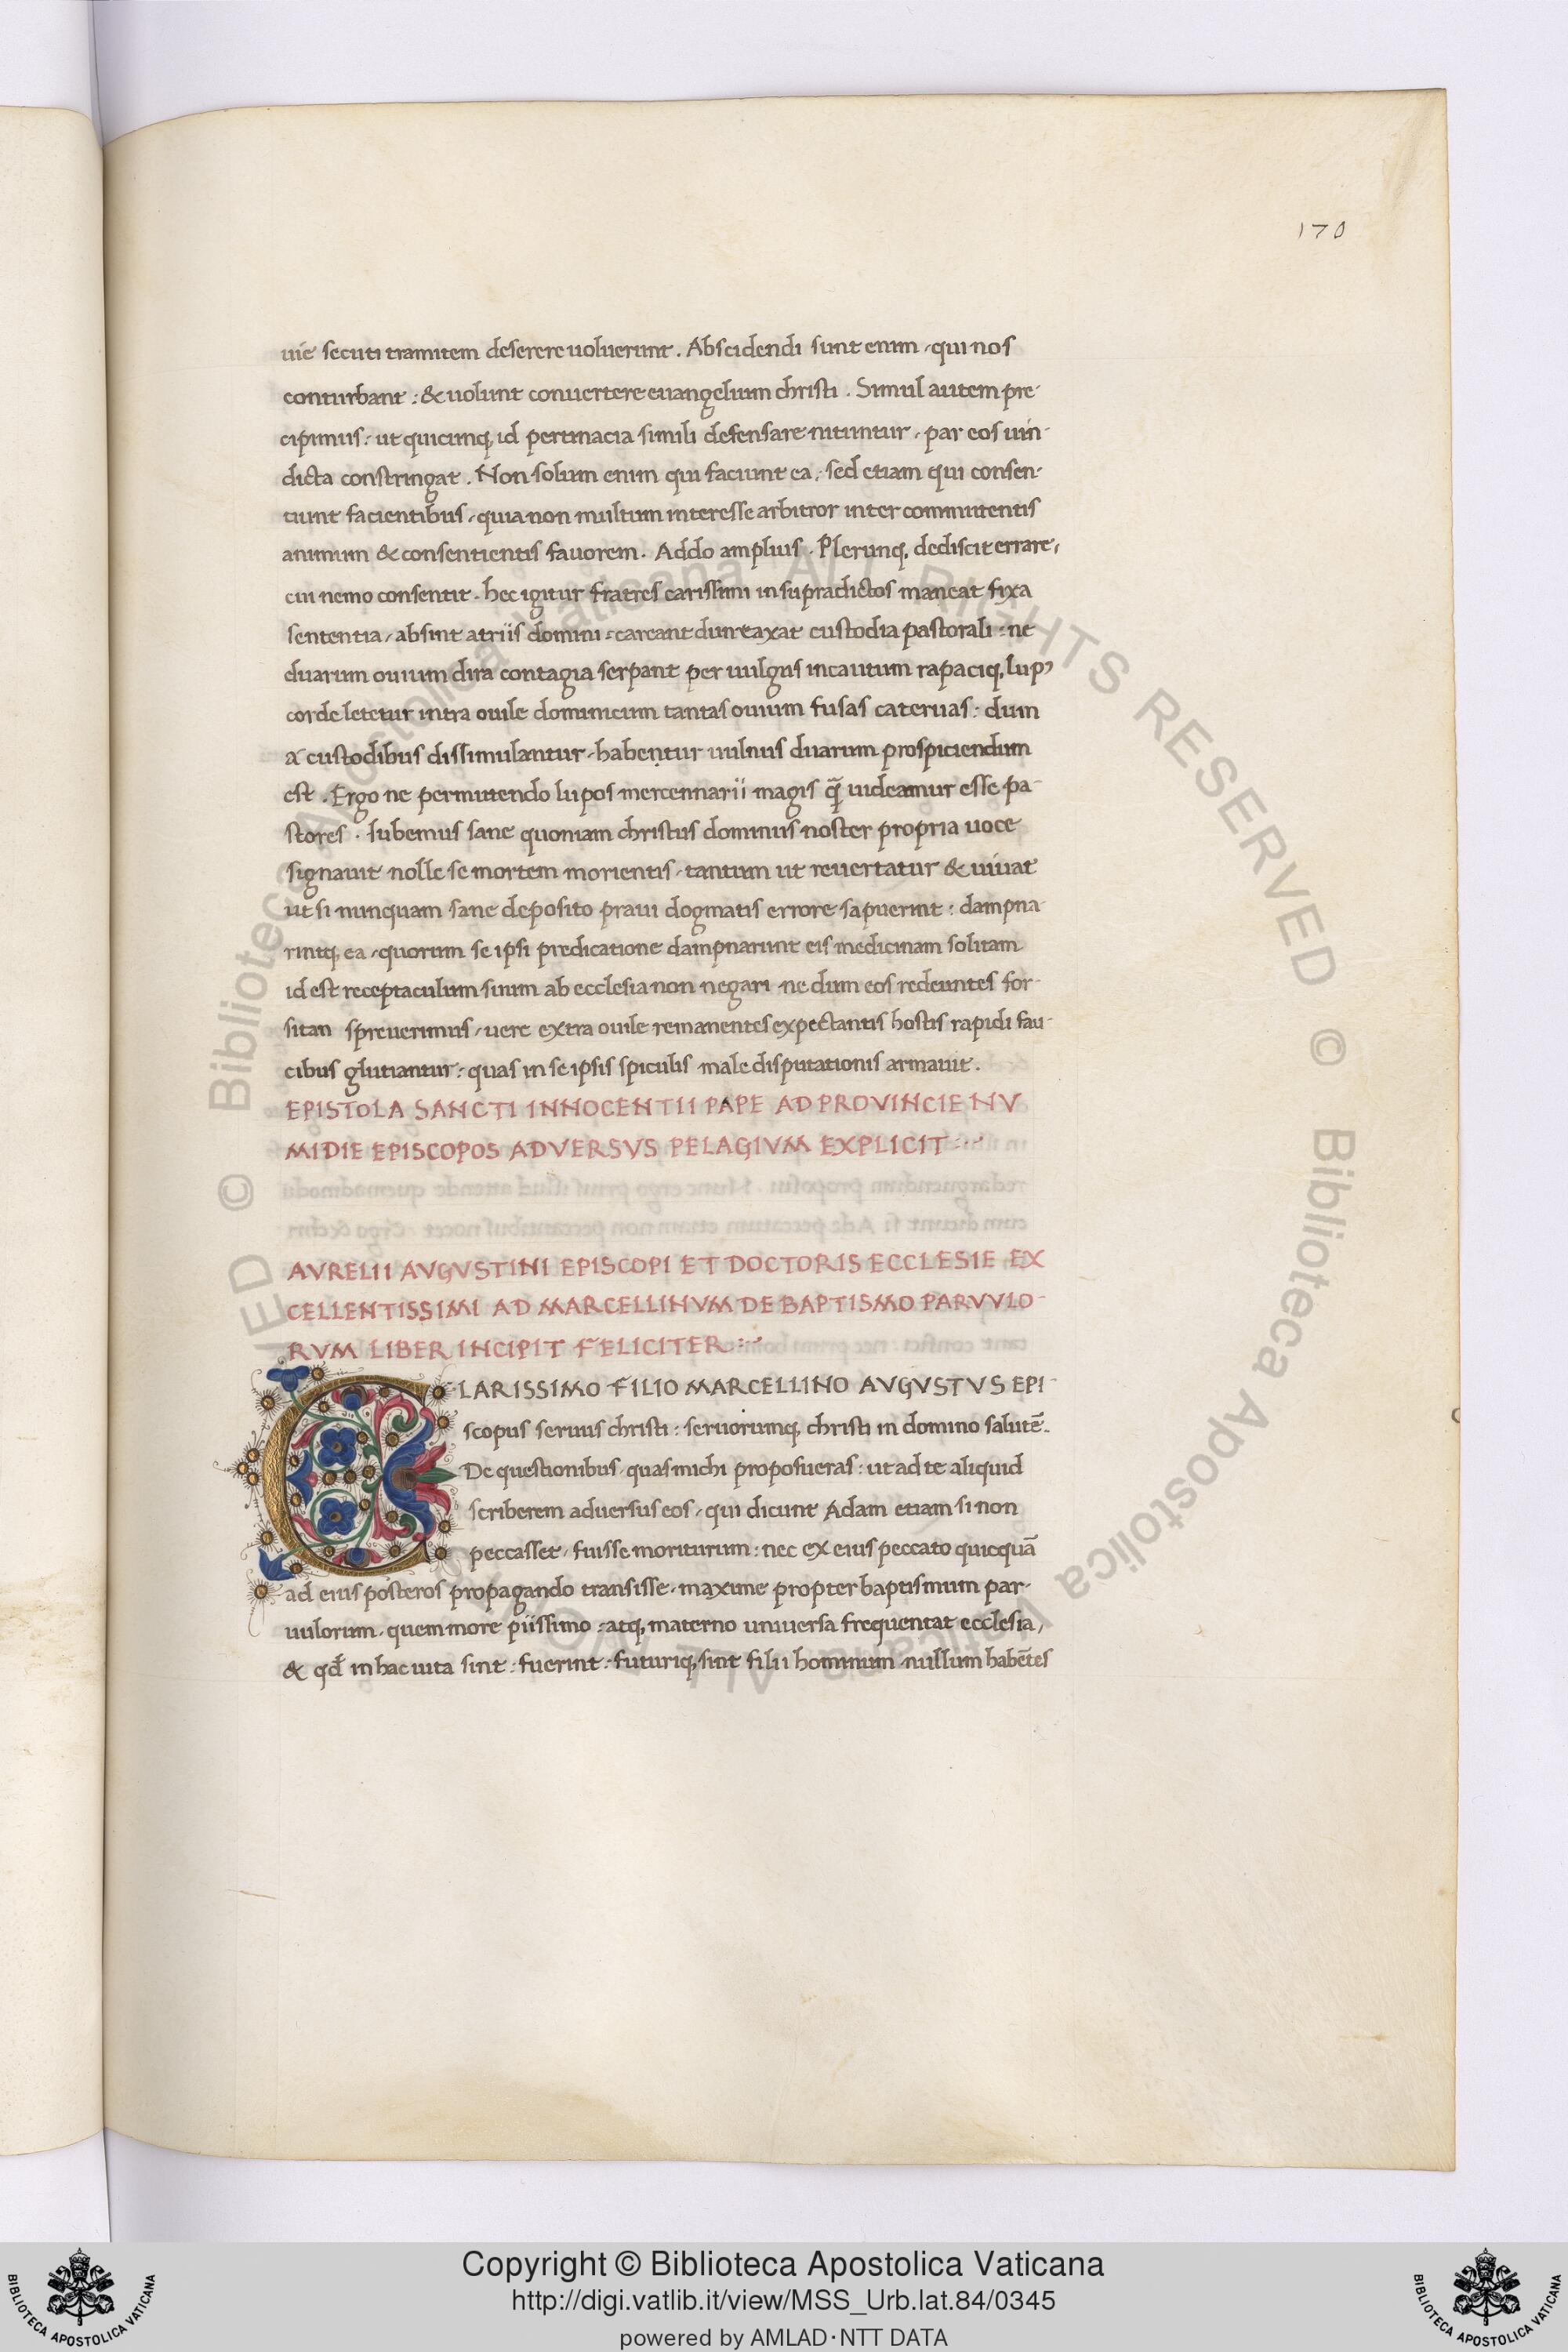 170
uie secuti tramitem deserere uoluerunt. Abscidendi sunt enim, qui nos
conturbant: & uolunt conuertere euangelium christi. Simul autem pre-
cipimus: ut quicunq; id pertinacia simili defensare nituntur, par eos uin-
dicta constringat. Non solum enim qui faciunt ea, sed etiam qui consen-
tiunt facientibus, quia non multum interesse arbitror inter committentis
animum & consentientis fauorem. Addo amplius. Plerunq; dediscit errare,
cui nemo consentit. hec igitur fratres carissimi in supradictos maneat fixa
sententia, absint atriis domini: careant duntaxat custodia pastorali: ne
duarum ouium dira contagia serpant per uulgus incautum rapaciq; lupꝰ
corde letetur intra ouile dominicum tantas ouium fusas cateruas: dum
a custodibus dissimulantur, habentur uulnus duarum prospiciendum
est. Ergo ne permittendo lupos mercennarii magis q̄ uideamur esse pa-
stores. Iubemus sane quoniam christus dominus noster propria uoce
signauit nolle se mortem morientis, tantum ut reuertatur & uiuat
ut si nunquam sane deposito praui dogmatis errore sapuerint: dampna
rintq; ea, quorum se ipsi predicatione dampnarunt eis medicinam solitam
id est receptaculum suum ab ecclesia non negari ne dum eos redeuntes for-
sitan spreuerimus, uere extra ouile remanentes expectantis hostis rapidi fau-
cibus glutiantur: quas in se ipsis spiculis male disputationis armauit.
EPISTOLA SANCTI INNOCENTII PAPE AD PROVINCIE NV
MIDIE EPISCOPOS ADVERSVS PELAGIVM EXPLICIT
AVRELII AVGVSTINI EPISCOPI ET DOCTORIS ECCLESIE EX
CELLENTISSIMI AD MARCELLINVM DE BAPTISMO PARVVLO-
RVM LIBER INCIPIT FELICITER
CLARISSIMO FILIO MARCELLINO AVGVSTVS EPI-
scopus seruus christi: seruorumq; christi in domino salutē.
De questionibus quas michi proposueras: ut ad te aliquid
scriberem aduersus eos, qui dicunt Adam etiam si non
peccasset, fuisse moriturum: nec ex eius peccato quicquā
ad eius posteros propagando transisse, maxime propter baptismum par-
uulorum, quem more piissimo: atq; materno uniuersa frequentat ecclesia,
& qđ in hac uita sint: fuerint: futuriq; sint filii hominum nullum habētes
© Biblioteca Apostolica Vaticana ALL RIGHTS RESERVED © Biblioteca Apostolica Vaticana ALL RIGHTS RESERVED
Copyright © Biblioteca Apostolica Vaticana
http://digi.vatlib.it/view/MSS_Urb.lat.84/0345
powered by AMLAD·NTT DATA
BIBLIOTECA APOSTOLICA VATICANA
BIBLIOTECA APOSTOLICA VATICANA